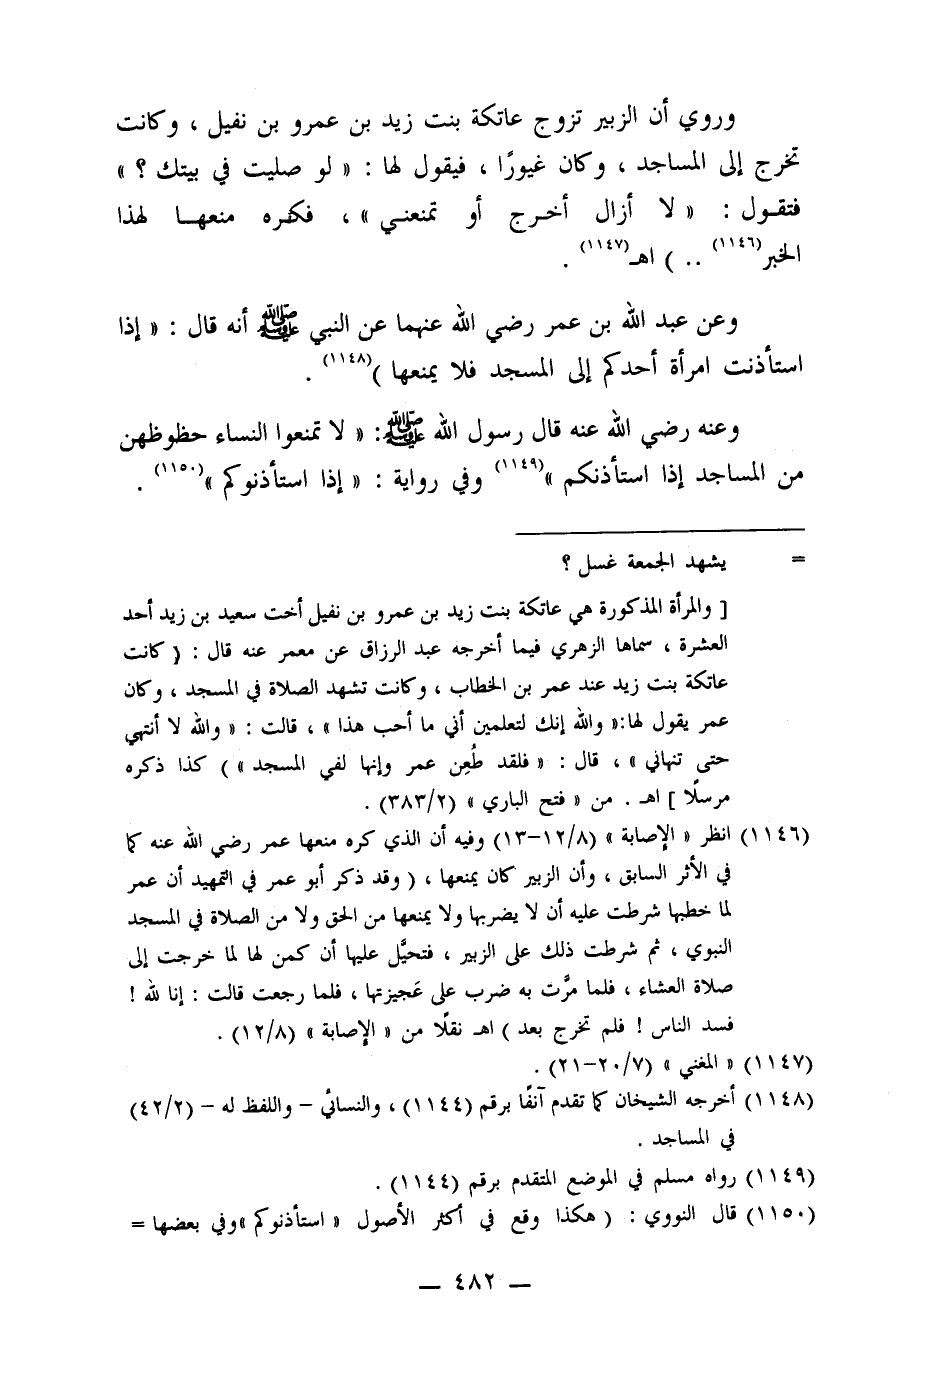 وروي أن الزبير تزوج عاتكة بنت زيد بن عمرو بن نفيل ، وكانت
تخرج إلى المساجد ، وكان غيورًا ، فيقول لها : « لو صليت في بيتك ؟ »
فتقول : « لا أزال أخرج أو تمنعني » ، فكره منعها لهذا
الخبر(١١٤٦) .. ) اهـ(١١٤٧) .
وعن عبد الله بن عمر رضي الله عنهما عن النبي ﷺ أنه قال : « إذا
استأذنت امرأة أحدكم إلى المسجد فلا يمنعها )(١١٤٨) .
وعنه رضي الله عنه قال رسول الله ﷺ: « لا تمنعوا النساء حظوظهن
من المساجد إذا استأذنكم »(١١٤٩) وفي رواية : « إذا استأذنوكم »(١١٥٠) .
= يشهد الجمعة غسل ؟
[ والمرأة المذكورة هي عاتكة بنت زيد بن عمرو بن نفيل أخت سعيد بن زيد أحد
العشرة ، سماها الزهري فيما أخرجه عبد الرزاق عن معمر عنه قال : ( كانت
عاتكة بنت زيد عند عمر بن الخطاب ، وكانت تشهد الصلاة في المسجد ، وكان
عمر يقول لها:« والله إنك لتعلمين أني ما أحب هذا » ، قالت : « والله لا أنتهي
حتى تنهاني » ، قال : « فلقد طُعِن عمر وإنها لفي المسجد » ) كذا ذكره
مرسلًا ] اهـ . من « فتح الباري » (٣٨٣/٢) .
(١١٤٦) انظر « الإصابة » (١٢/٨-١٣) وفيه أن الذي كره منعها عمر رضي الله عنه كما
في الأثر السابق ، وأن الزبير كان يمنعها ، ( وقد ذكر أبو عمر في التمهيد أن عمر
لما خطبها شرطت عليه أن لا يضربها ولا يمنعها من الحق ولا من الصلاة في المسجد
النبوي ، ثم شرطت ذلك على الزبير ، فتحيَّل عليها أن كمن لها لما خرجت إلى
صلاة العشاء ، فلما مرَّت به ضرب على عَجيزتها ، فلما رجعت قالت : إنا لله !
فسد الناس ! فلم تخرج بعد ) اهـ نقلًا من « الإصابة » (١٢/٨) .
(١١٤٧) « المغني » (٢٠/٧-٢١) .
(١١٤٨) أخرجه الشيخان كما تقدم آنفًا برقم (١١٤٤) ، والنسائي – واللفظ له – (٤٢/٢)
في المساجد .
(١١٤٩) رواه مسلم في الموضع المتقدم برقم (١١٤٤) .
(١١٥٠) قال النووي : ( هكذا وقع في أكثر الأصول « استأذنوكم »وفي بعضها =
— ٤٨٢ —